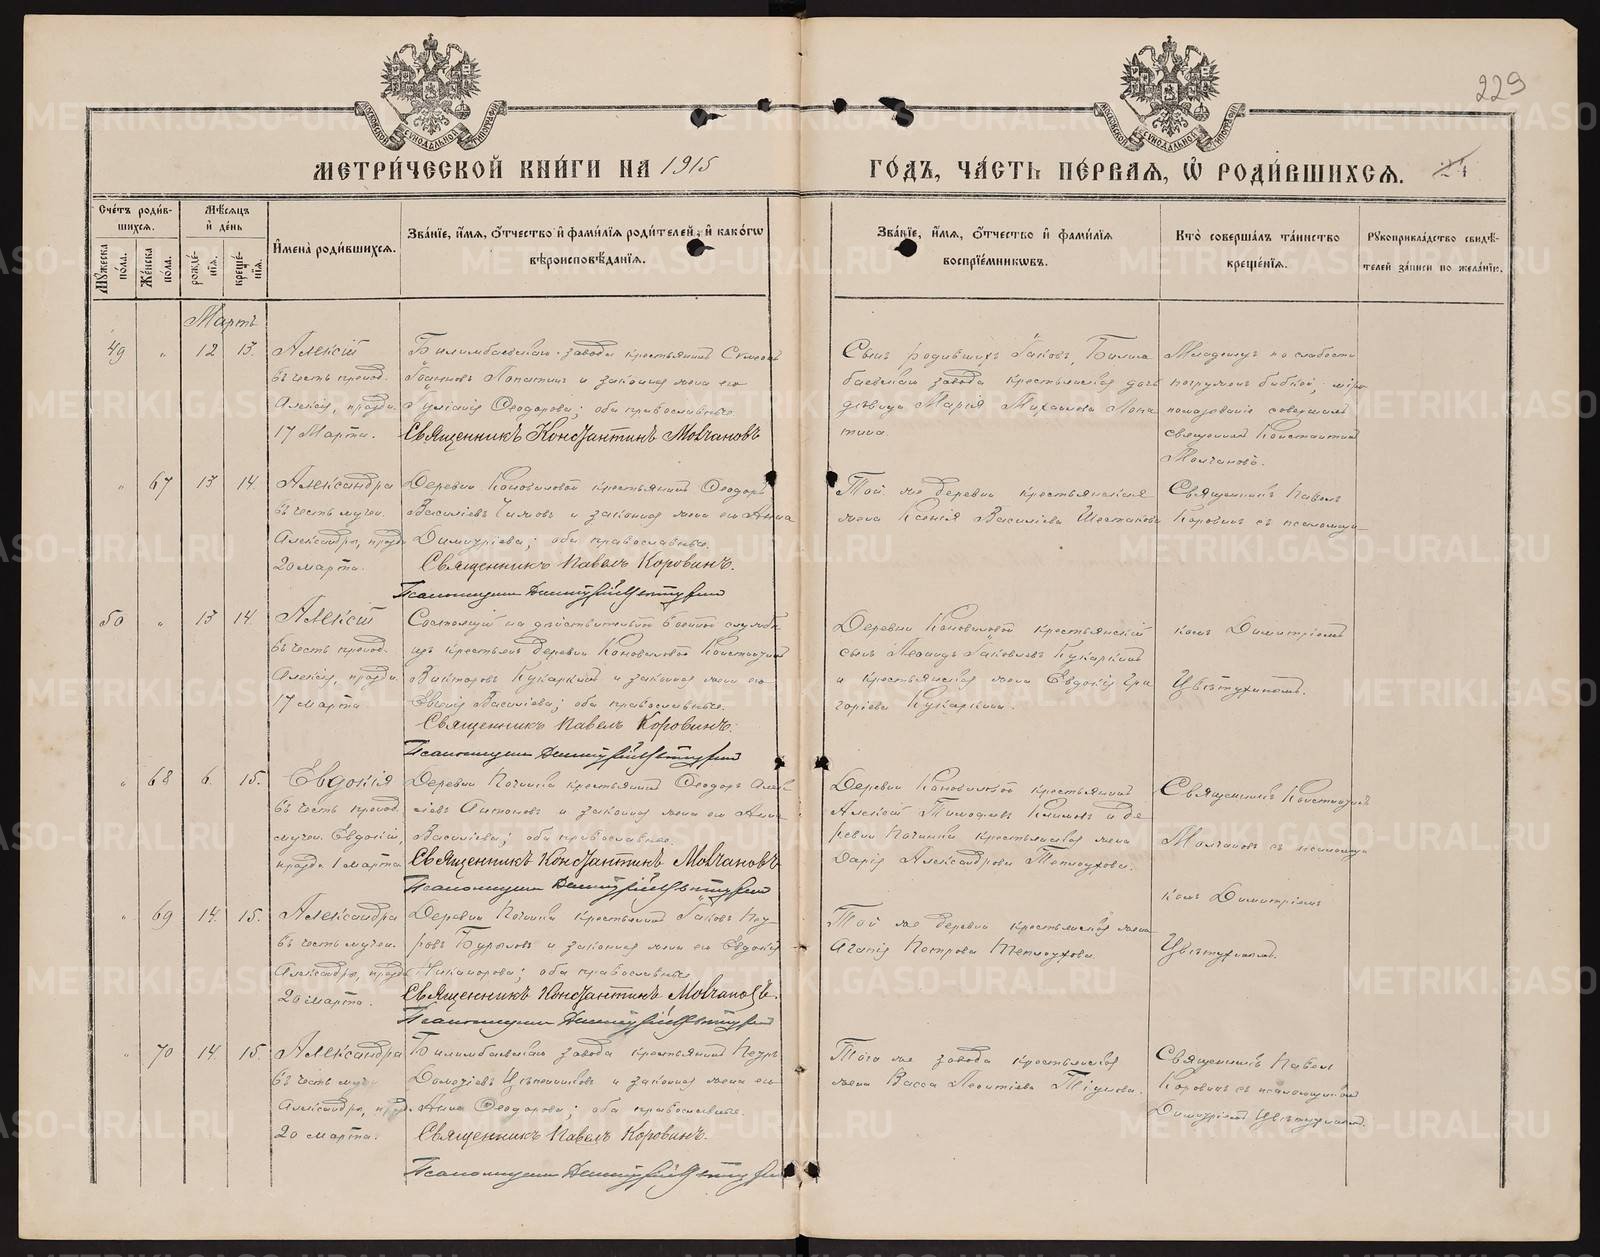 229
МЕТРИ́ЧЕСКОЙ КНИ́ГИ НА 1915 ГО́ДЪ, ЧА́СТЬ ПЕ́РВАЯ, Ѡ҆ РОДИ́ВШИХСЯ.
Сче́тъ роди́в-
шихся.
Мѹ́жеска по́ла.
Же́нска по́ла.
Мѣ́сяцъ
и҆ де́нь
рожде́-
нїя.
креще́-
нїя.
И҆мена̀ роди́вшихся.
Зва́нїе, и҆́мя, ѻ҆́тчество и҆ фами́лїя роди́телей, и҆ како́гѡ
вѣроисповѣ́данїя.
Зва́нїе, и҆́мя, ѻ҆́тчество и҆ фами́лїя
воспрїе́мниковъ.
Кто̀ соверша́лъ та́инство
креще́нїя.
Рѹкоприкла́дство свидѣ́-
телей за́писи по жела́нїю.
Мартъ
49 " 12 13.
Алексій
въ честь препод.
Алексія, праздн.
17 Марта.
Билимбаевскаго завода крестьянинъ Симеонъ
Іоанновъ Лопатинъ и законная жена его
Іуліанія Ѳеодорова; оба православные.
Священникъ Константинъ Молчановъ
Сынъ родившихъ Іаковъ, Билим
баевскаго завода крестьянская дочь
дѣвица Марія Михаилова Лопа
тина.
Младенецъ по слабости
погруженъ бабкой; мѵро
помазаніе совершалъ
священникъ Константинъ
Молчановъ.
" 67 13 14.
Александра
въ честь мучен.
Александры, праздн.
20 марта.
Деревни Коноваловой крестьянинъ Ѳеодоръ
Василіевъ и законная жена его Анна
Димитріева; оба православные.
Священникъ Павелъ Коровинъ.
Псаломщикъ Димитрій Цвѣтухинъ
Той же деревни крестьянская
жена Ксенія Василіева Шестакова
Священникъ Павелъ
Коровинъ съ псаломщи-
50 " 13 14.
Алексій
въ честь препод.
Алексія, праздн.
17 марта
Состоящій на дѣйствительной военной службѣ
изъ крестьянъ деревни Коноваловой Константинъ
Викторовъ Кукаркинъ и законная жена его
Евгенія Василіева; оба православные.
Священникъ Павелъ Коровинъ.
Псаломщикъ Димитрій Цвѣтухинъ
Деревни Коноваловой крестьянскій
сынъ Леонидъ Іаковлевъ Кукаркинъ
и крестьянская жена Евдокія Гри
горіева Кукаркина.
комъ Димитріемъ
Цвѣтухинымъ.
" 68 6. 15.
Евдокія
въ честь препод.
мучен. Евдокіи,
праздн 1 марта
Деревни Починка крестьянинъ Ѳеодоръ Алек
сіевъ Антоновъ и законная жена его Анна
Василіева; оба православные.
Священникъ Константинъ Молчановъ
Псаломщикъ Димитрій Цвѣтухинъ
Деревни Коноваловой крестьянинъ
Алексій Тимоѳеевъ Климовъ и де
ревни Починка крестьянская жена
Дарія Александрова Теплоухова.
Священникъ Константинъ
Молчановъ съ псаломщи
" 69 14. 15.
Александра
въ честь мучен.
Александры, праздн
20 марта.
Деревни Починка крестьянинъ Іаковъ Пет
ровъ Бурыловъ и законная жена его Евдокія
Никанорова; оба православные.
Священникъ Константинъ Молчановъ.
Псаломщикъ Димитрій Цвѣтухинъ
Той же деревни крестьянская жена
Агапія Петрова Теплоухова.
комъ Димитріемъ
Цвѣтухинымъ.
" 70 14. 15.
Александра
въ честь муч
Александры, празд.
20 марта.
Билимбаевскаго завода крестьянинъ Петръ
и законная жена его
Анна Ѳеодорова; оба православные.
Священникъ Павелъ Коровинъ.
Псаломщикъ Димитрій Цвѣтухинъ
Того же завода крестьянская
жена Васса Леонтіева Тіунова.
Священникъ Павелъ
Коровинъ съ псаломщикомъ
Димитріемъ Цвѣтухинымъ.
METRIKI.GASO-URAL.RU